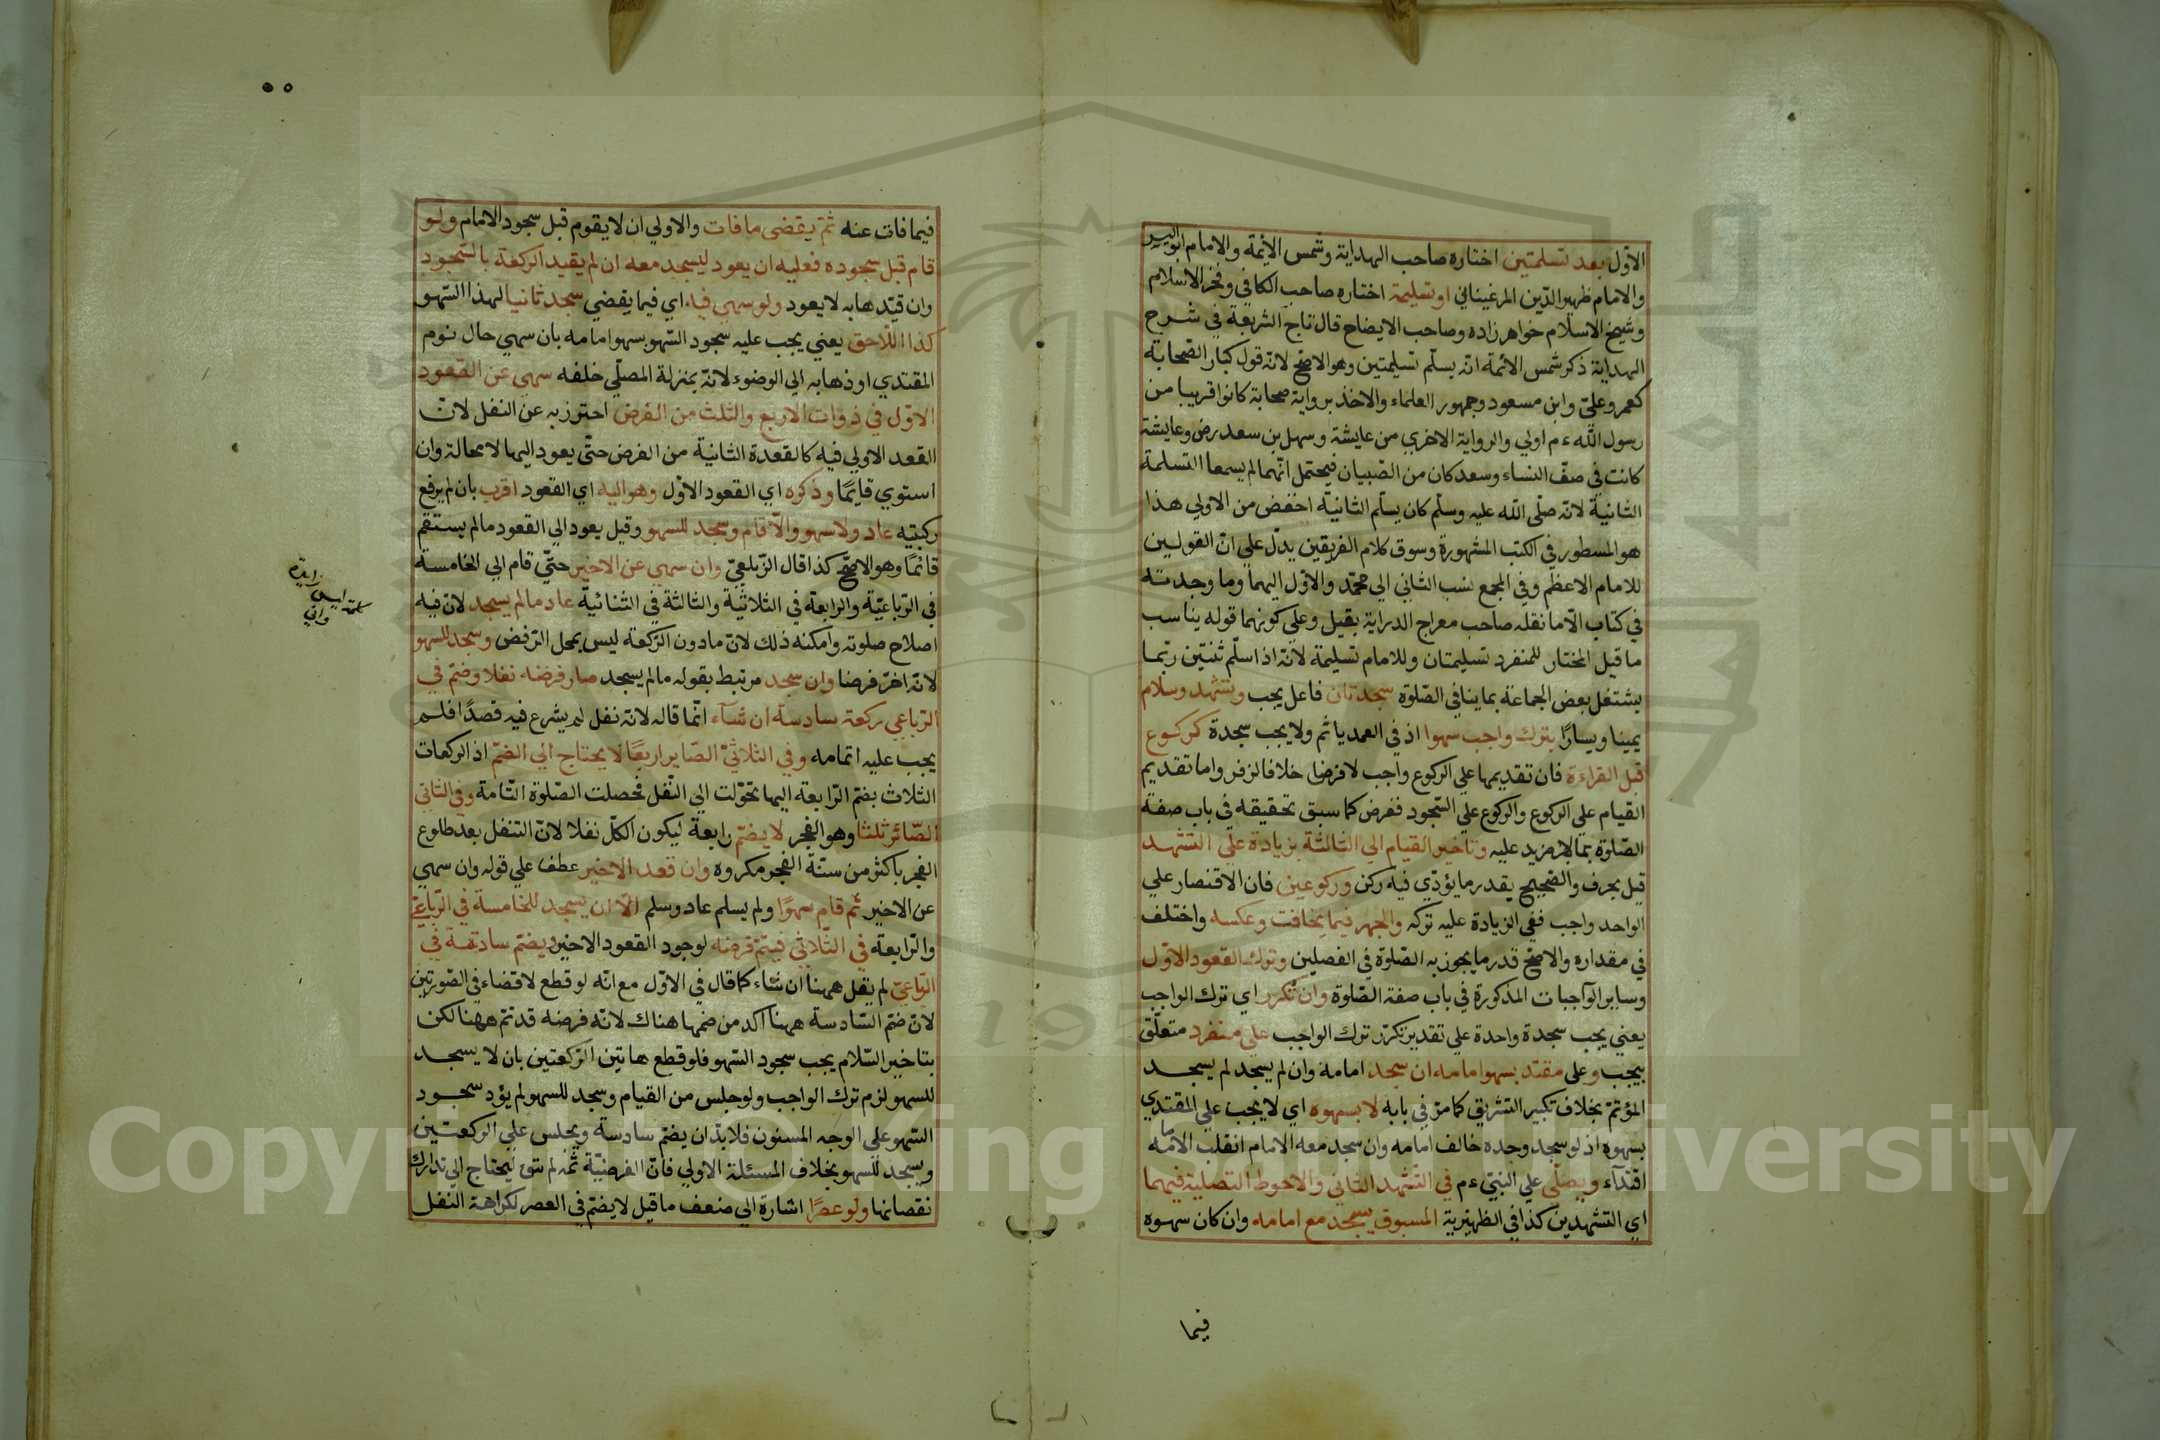 الاول بعد تسليمتين اختاره صاحب الهداية وشمس الايمة والامام ابو اليسر
والامام ظهير الدين المرغيناني او تسليمة اختاره صاحب الكافي وفخر الاسلام
وشيخ الاسلام خواهر زاده وصاحب الايضاح قال تاج الشريعة في شرح
الهداية ذكر شمس الائمة انه يسلم تسليمتين وهو الاصح لانه قول كبار الصحابة
كعمر وعلي وابن مسعود وجمهور العلماء والاخذ برواية صحابة كانوا قريبا من
رسول الله ءم اولي والرواية الاخري من عايشة وسهل بن سعد رض وعايشة
كانت في صف النساء وسعد كان من الصبيان فيحتمل انهما لم يسمعا التسلمة
الثانية لانه صلي الله عليه وسلم كان يسلم الثانية اخفض من الاولي هذا
هو المسطور في الكتب المشهورة وسوق كلام الفريقين يدل علي ان القولين
للامام الاعظم وفي المجمع نسب الثاني الي محمد والاول اليهما وما وجدته
في كتاب الا ما نقله صاحب معراج الدراية بقيل وعلي كونهما قوله يناسب
ما قيل المختار للمنفرد تسليمتان وللامام تسليمة لانه اذا سلم ثنتين ربما
يشتغل بعض الجماعة بما ينافي الصلوة سجدتان فاعل يجب وتشهد وسلام
يمينا ويسارا بترك واجب سهوا اذ في العمد ياثم ولا يجب سجدة كركوع
قبل القراءة فان تقديمها علي الركوع واجب لا فرض خلافا لزفر واما تقديم
القيام علي الركوع والركوع علي السجود ففرض كما سبق تحقيقه في باب صفة
الصلوة بما لا مزيد عليه وتاخير القيام الي الثالثة بزيادة علي التشهد
قيل بحرف والصحيح بقدر ما يؤدي فيه ركن وركوعين فان الاقتصار علي
الواحد واجب ففي الزيادة عليه تركه والجهر فيما يخافت وعكسه واختلف
في مقداره والاصح قدر ما يجوز به الصلوة في الفصلين وترك القعود الاول
وساير الواجبات المذكورة في باب صفة الصلوة وان تكرر اي ترك الواجب
يعني يجب سجدة واحدة علي تقدير تكرر ترك الواجب علي منفرد متعلق
بيجب وعلي مقتد بسهو امامه ان سجد امامه وان لم يسجد لم يسجد
المؤتم بخلاف تكبير التشريق كما مر في بابه لا بسهوه اي لا يجب علي المقتدي
بسهوه اذ لو سجد وحده خالف امامه وان سجد معه الامام انقلب الامامة
اقتدآء ويصلي علي النبي ءم في التشهد الثاني والاحوط التصلية فيهما
اي التشهدين كذا في الظهيرية المسبوق يسجد مع امامه وان كان سهوه
فيما
٥٥
فيما فات عنه ثم يقضي ما فات والاولي ان لا يقوم قبل سجود الامام ولو
قام قبل سجوده فعليه ان يعود ليسجد معه ان لم يقيد الركعة بالسجود
وان قيدها به لا يعود ولو سهي فيه اي فيما يقضي سجد ثانيا لهذا السهو
كذا اللاحق يعني يجب عليه سجود السهو بسهو امامه بان سهي حال نوم
المقتدي او ذهابه الي الوضوء لانه بمنزلة المصلي خلفه سهي عن القعود
الاول في ذوات الاربع والثلث من الفرض احترز به عن النفل لان
القعد الاولي فيه كالقعدة الثانية من الفرض حتي يعود اليها لا محالة وان
استوي قايما وذكره اي القعود الاول وهو اليه اي القعود اقرب بان لم يرفع
ركبتيه عاد ولا سهو والا قام وسجد للسهو وقيل يعود الي القعود ما لم يستقم
قائما وهو الاصح كذا قال الزيلعي وان سهي عن الاخير حتي قام الي الخامسة
في الرباعية والرابعة في الثلاثية والثالثة في الثنائية عاد ما لم يسجد لان فيه
اصلاح صلوته وامكنه ذلك لان ما دون الركعة ليس بمحل الرفض وسجد للسهو
لانه اخر فرضا وان سجد مرتبط بقوله ما لم يسجد صار فرضه نفلا وضم في
الرباعي ركعة سادسة ان شآء انما قاله لانه نفل لم يشرع فيه قصدا فلم
يجب عليه اتمامه وفي الثلاثي الصاير اربعا لا يحتاج الي الضم اذ الركعات
الثلاث بضم الرابعة اليها تحولت الي النفل فحصلت الصلوة التامة وفي الثاني
الصائر ثلثا وهو الفجر لا يضم رابعة ليكون الكل نفلا لان التنفل بعد طلوع
الفجر باكثر من سنة الفجر مكروه وان قعد الاخير عطف علي قوله وان سهي
عن الاخير ثم قام سهوا ولم يسلم عاد وسلم الا ان يسجد للخامسة في الرباعي
والرابعة في الثلاثي فيتم فرضه لوجود القعود الاخير ويضم سادسة في
الرباعي لم يقل ههنا ان شاء كما قال في الاول مع انه لو قطع لا قضاء في الصورتين
لان ضم السادسة ههنا اكد من ضمها هناك لانه فرضه قد تم ههنا لكن
بتاخير السلام يجب سجود السهو فلو قطع هاتين الركعتين بان لا يسجد
للسهو لزم ترك الواجب ولو جلس من القيام وسجد للسهو لم يؤد سجود
السهو علي الوجه المسنون فلا بد ان يضم سادسة ويجلس علي الركعتين
ويسجد للسهو بخلاف المسئلة الاولي فان الفرضية ثمه لم تبق ليحتاج الي تدارك
نقصانها ولو عصرا اشارة الي ضعف ما قيل لا يضم في العصر لكراهة النفل
زايدة
كلمة ليس
وان
Copyright © King Saud University